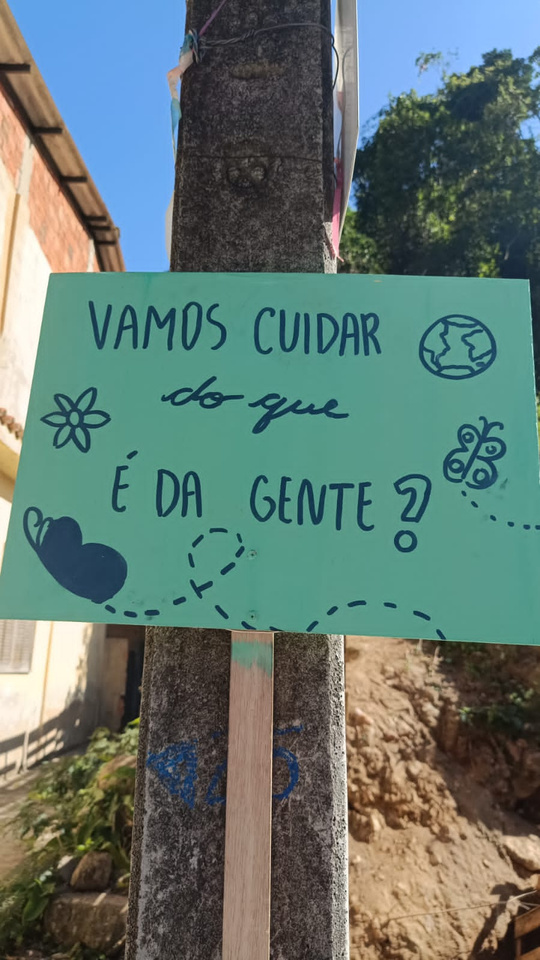 VAMOS CUIDAR
do que
É DA GENTE?